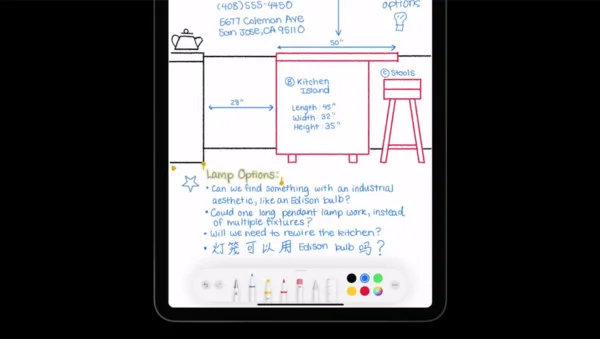 (408) 555-4450
6677 Coleman Ave
San Jose, CA 95110
options
50"
28"
B Kitchen
Island
Length: 45"
Width: 32"
Height: 35"
C Stools
Lamp Options:
• Can we find something with an industrial
aesthetic, like an Edison bulb?
• Could one long pendant lamp work, instead
of multiple fixtures?
• Will we need to rewire the kitchen?
• 灯笼可以用 Edison bulb 吗?